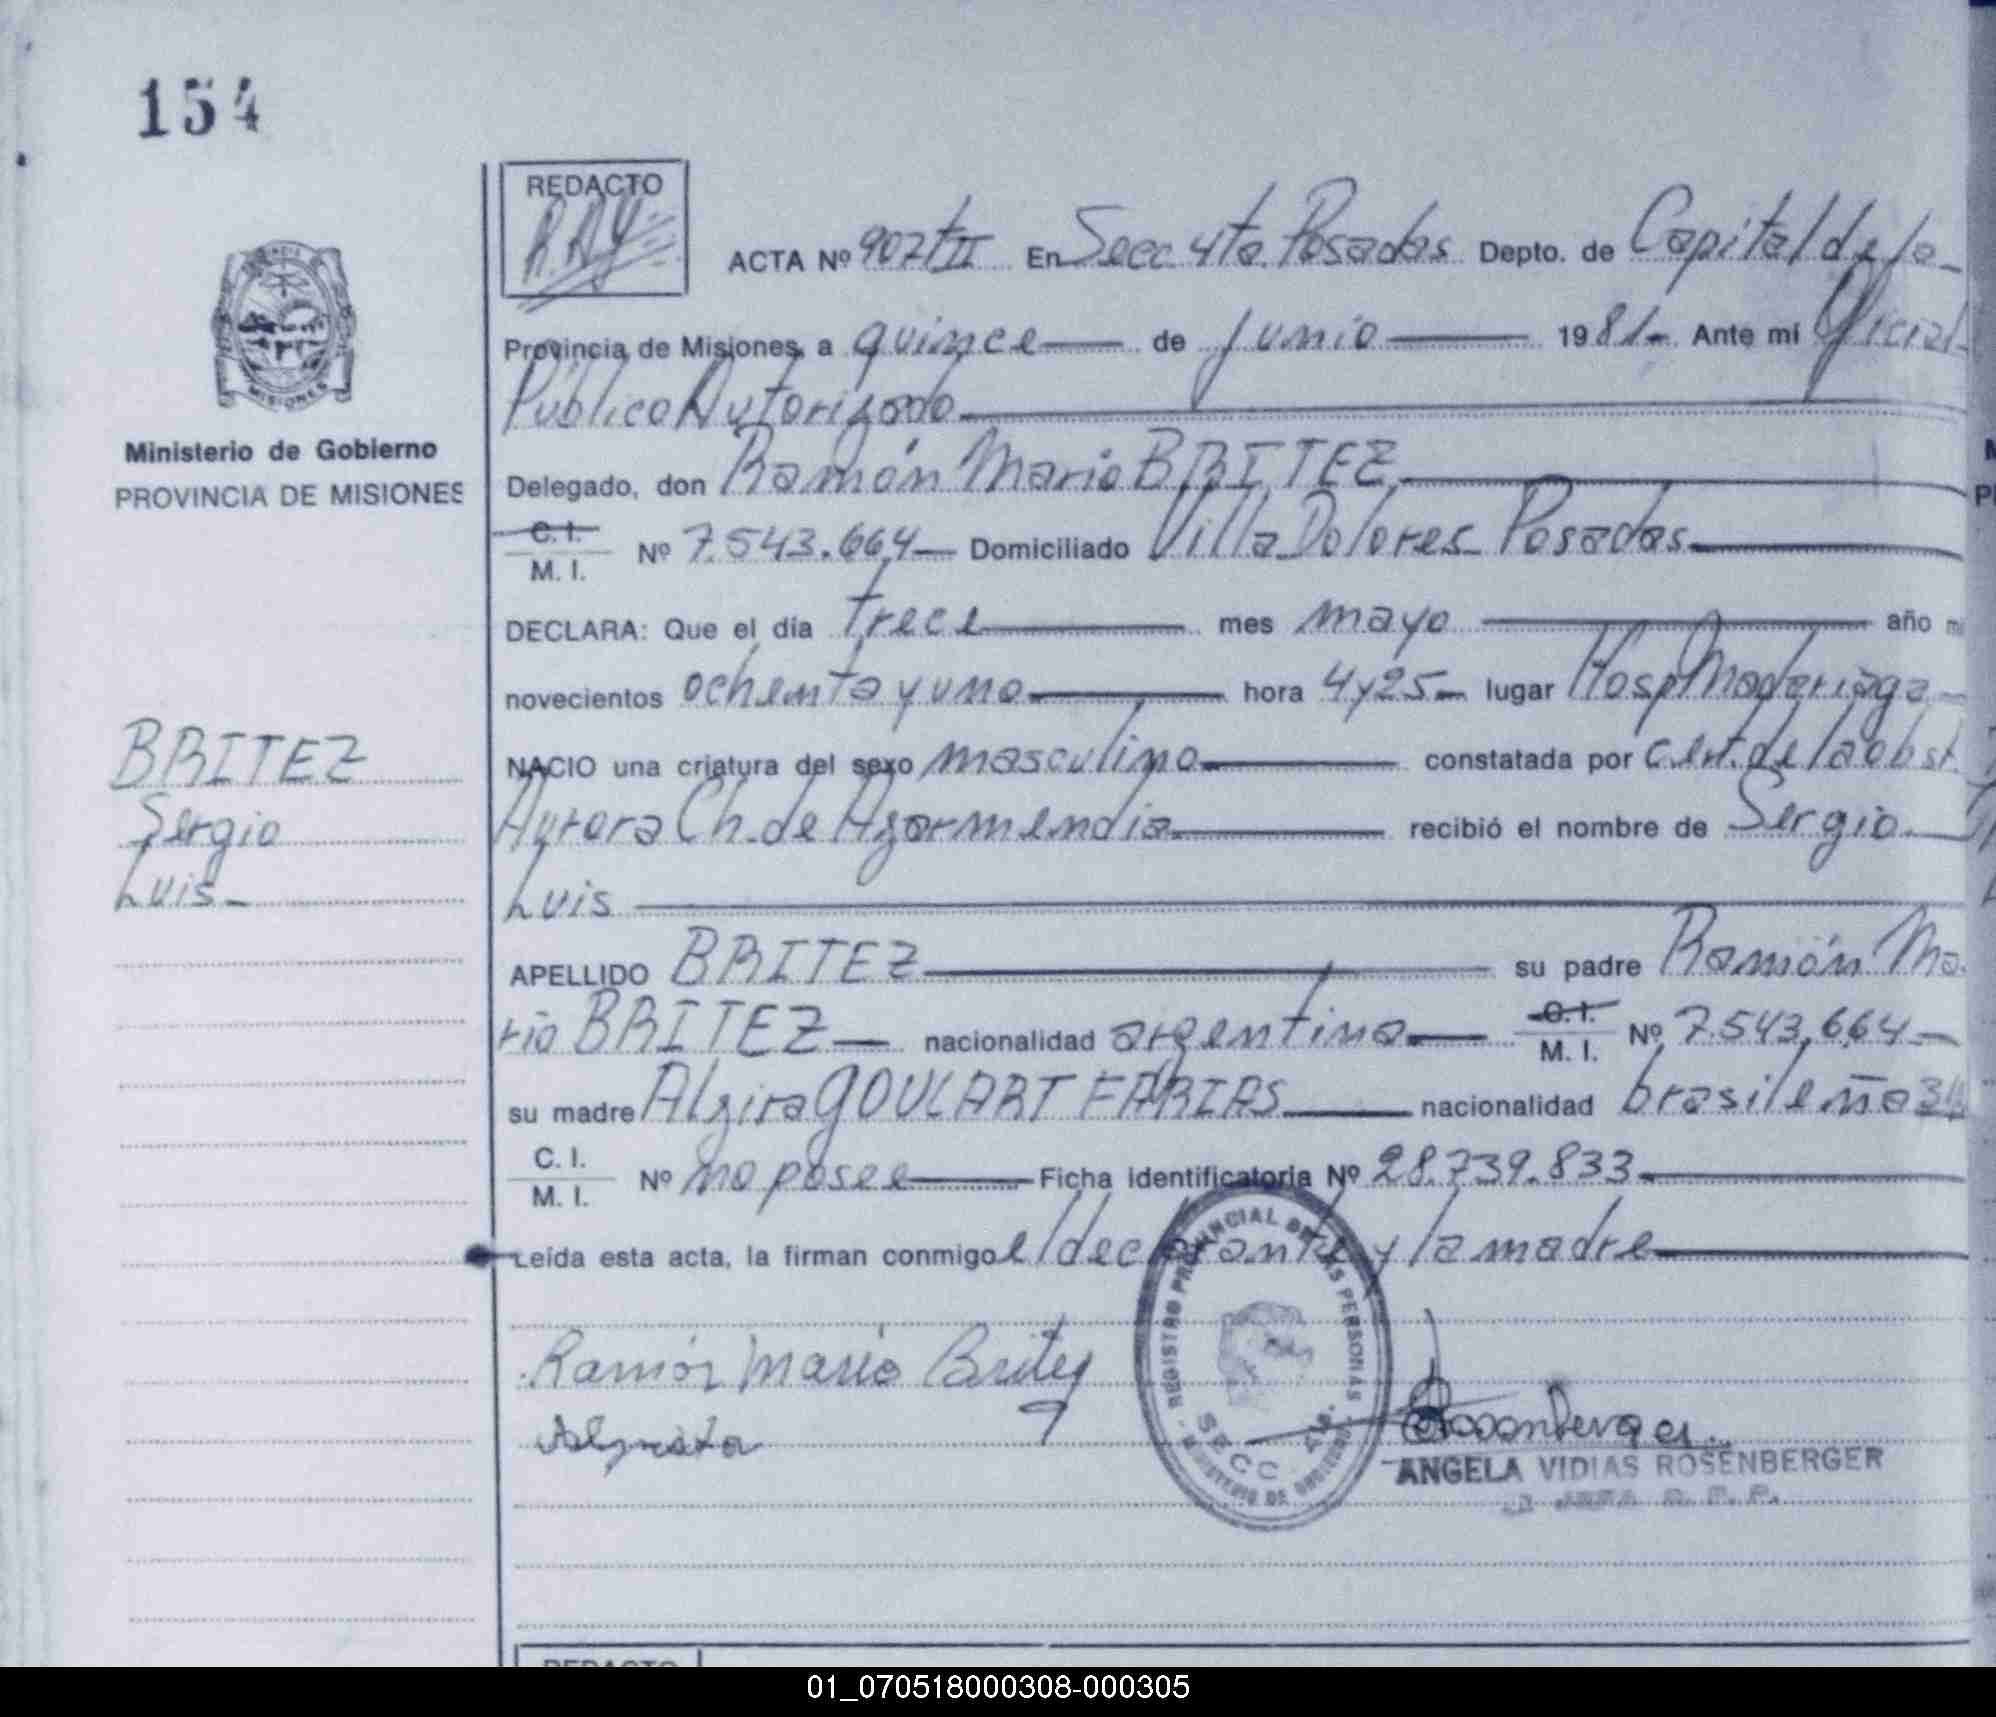 154
REDACTO
ACTA Nº 907 TII En Secc 4ta. Posadas Depto. de Capital de la
Provincia de Misiones, a quince de junio 1981 Ante mí Oficial
Público Autorizado
Ministerio de Gobierno
PROVINCIA DE MISIONES
Delegado, don Ramón Mario BRITEZ
C. I.
M. I. Nº 7.543.664 Domiciliado Villa Dolores Posadas
DECLARA: Que el día trece mes mayo año
novecientos ochenta y uno hora 4y25 lugar Hosp Madariaga
BRITEZ
Sergio
Luis
NACIO una criatura del sexo masculino constatada por cert. de la obst.
Aurora Ch. de Azarmendia recibió el nombre de Sergio
Luis
APELLIDO BRITEZ su padre Ramón Ma
rio BRITEZ nacionalidad argentina C. I. M. I. Nº 7.543.664
su madre Alzira GOULART FARIAS nacionalidad brasileña
C. I.
M. I. Nº no posee Ficha identificatoria Nº 28.739.833
Leída esta acta, la firman conmigo el declarante y la madre
Ramón Mario Britez
REGISTRO PROVINCIAL DE LAS PERSONAS
SECC. 4ta.
ANGELA VIDIAS ROSENBERGER
REDACTO
01_070518000308-000305